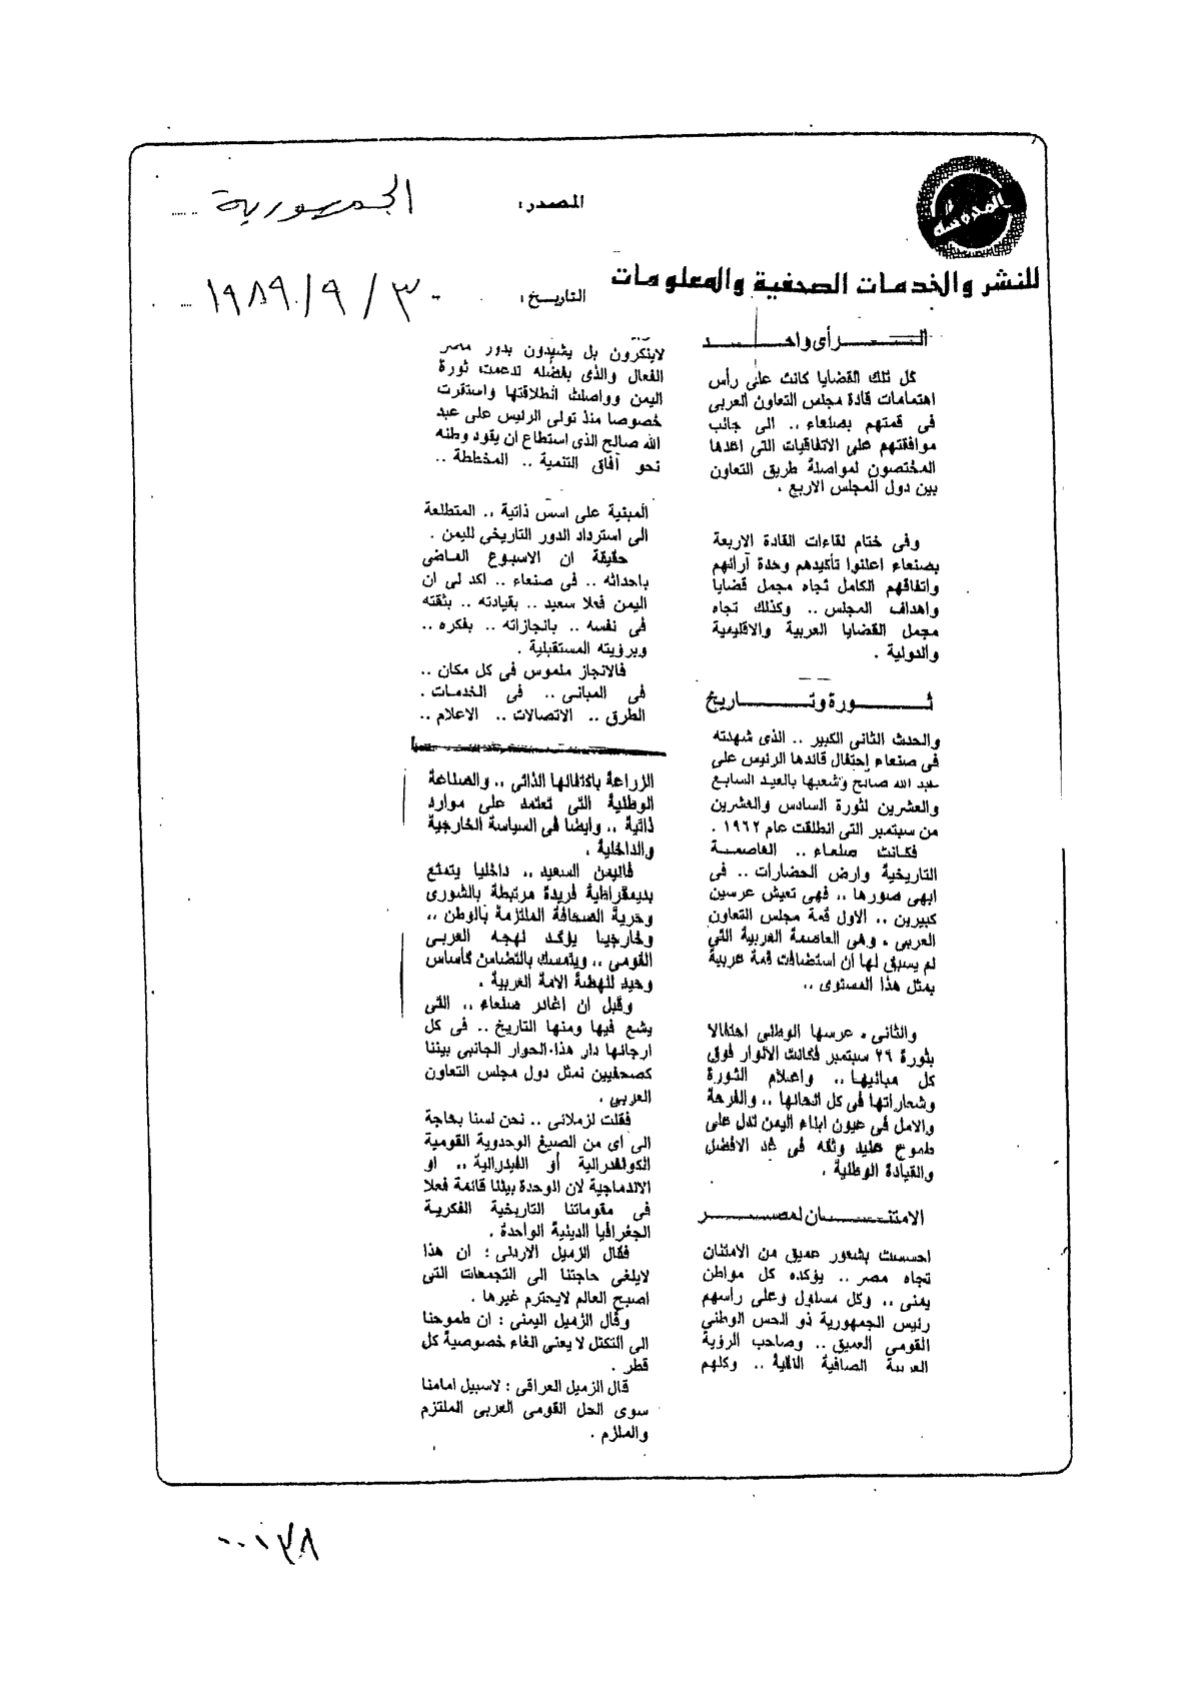 المصدر: الجمهورية
المدوسة
للنشر والخدمات الصحفية والمعلومات
التاريخ: ٣٠ / ٩ / ١٩٨٩
الــرأى واحــد
كل تلك القضايا كانت على رأس
اهتمامات قادة مجلس التعاون العربى
فى قمتهم بصنعاء .. الى جانب
موافقتهم على الاتفاقيات التى اعدها
المختصون لمواصلة طريق التعاون
بين دول المجلس الاربع .
وفى ختام لقاءات القادة الاربعة
بصنعاء اعلنوا تأكيدهم وحدة آرائهم
واتفاقهم الكامل تجاه مجمل قضايا
واهداف المجلس .. وكذلك تجاه
مجمل القضايا العربية والاقليمية
والدولية .
ثــورة وتــاريخ
والحدث الثانى الكبير .. الذى شهدته
فى صنعاء إحتفال قائدها الرئيس على
عبد الله صالح وشعبها بالعيد السابع
والعشرين لثورة السادس والعشرين
من سبتمبر التى انطلقت عام ١٩٦٢ .
فكانت صنعاء .. العاصمة
التاريخية وارض الحضارات .. فى
ابهى صورها .. فهى تعيش عرسين
كبيرين .. الاول قمة مجلس التعاون
العربى ، وهى العاصمة العربية التى
لم يسبق لها ان استضافت قمة عربية
بمثل هذا المستوى ..
والثانى ، عرسها الوطنى احتفالا
بثورة ٢٦ سبتمبر فكانت الانوار فوق
كل مبانيها .. واعلام الثورة
وشعاراتها فى كل انحائها .. والفرحة
والامل فى عيون ابناء اليمن تدل على
طموح عنيد وثقه فى غد الافضل
والقيادة الوطنية .
الامتنــان لمصــر
احسست بشعور عميق من الامتنان
تجاه مصر .. يؤكده كل مواطن
يمنى .. وكل مسئول وعلى رأسهم
رئيس الجمهورية ذو الحس الوطنى
القومى العميق .. وصاحب الرؤية
العربية الصافية النقية .. وكلهم
لاينكرون بل يشيدون بدور مصر
الفعال والذى بفضله تدعمت ثورة
اليمن وواصلت انطلاقتها واستقرت
خصوصا منذ تولى الرئيس على عبد
الله صالح الذى استطاع ان يقود وطنه
نحو آفاق التنمية .. المخططة ..
المبنية على اسس ذاتية .. المتطلعة
الى استرداد الدور التاريخى لليمن .
حقيقة ان الاسبوع الماضى
باحداثه .. فى صنعاء .. اكد لى ان
اليمن فعلا سعيد .. بقيادته .. بثقته
فى نفسه .. بانجازاته .. بفكره ..
وبرؤيته المستقبلية .
فالانجاز ملموس فى كل مكان ..
فى المبانى .. فى الخدمات .
الطرق .. الاتصالات .. الاعلام ..
الزراعة باكتفائها الذاتى .. والصناعة
الوطنية التى تعتمد على موارد
ذاتية .. وايضا فى السياسة الخارجية
والداخلية .
فاليمن السعيد .. داخليا يتمتع
بديمقراطية فريدة مرتبطة بالشورى
وحرية الصحافة الملتزمة بالوطن ..
وخارجيا يؤكد نهجه العربى
القومى .. ويتمسك بالتضامن كأساس
وحيد لنهضة الامة العربية .
وقبل ان اغادر صنعاء .. التى
يشع فيها ومنها التاريخ .. فى كل
ارجائها دار هذا الحوار الجانبى بيننا
كصحفيين نمثل دول مجلس التعاون
العربى .
فقلت لزملائى .. نحن لسنا بحاجة
الى اى من الصيغ الوحدوية القومية
الكونفدرالية أو الفيدرالية .. او
الاندماجية لان الوحدة بيننا قائمة فعلا
فى مقوماتنا التاريخية الفكرية
الجغرافيا الدينية الواحدة .
فقال الزميل الاردنى : ان هذا
لايلغى حاجتنا الى التجمعات التى
اصبح العالم لايحترم غيرها .
وقال الزميل اليمنى : ان طموحنا
الى التكتل لا يعنى الغاء خصوصية كل
قطر .
قال الزميل العراقى : لاسبيل امامنا
سوى الحل القومى العربى الملتزم
والملزم .
٠٠١٣٨